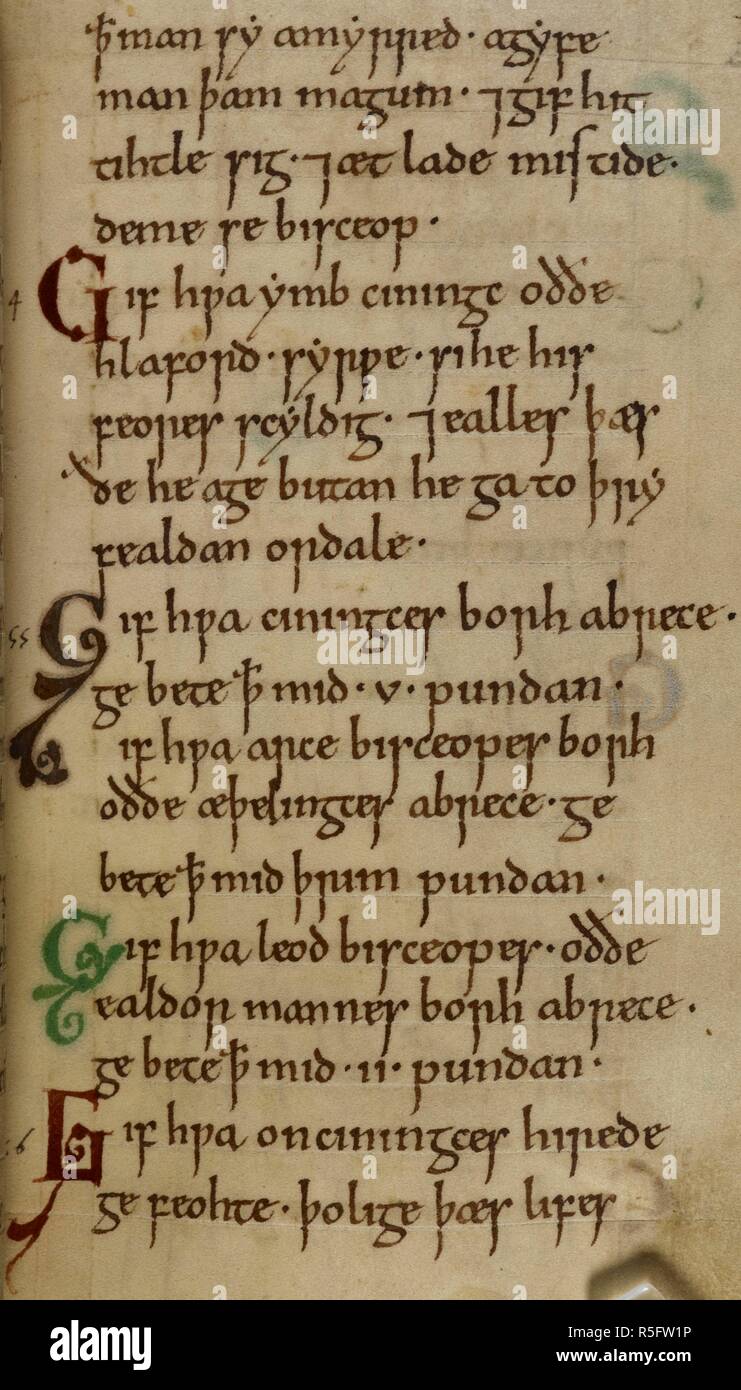 ꝥ man sy amyrred · agyfe
man þam magum · ⁊ gif hit
tihtle sig · ⁊ æt lade mistide ·
deme se bisceop ·
4 Gif hƿa ymb cininge oððe
hlaford · syrƿe · si he his
feores scyldig · ⁊ ealles þæs
ðe he age butan he ga to þry
fealdan ordale ·
55 Gif hƿa ciningces borh abrece ·
ge bete ꝥ mid · v · pundan ·
Gif hƿa arce bisceopes borh
oððe æþelingces abrece · ge
bete ꝥ mid þrim pundan ·
Gif hƿa leod bisceopes · oððe
ealdor mannes borh abrece ·
ge bete ꝥ mid · ii · pundan ·
56 Gif hƿa on ciningces hirede
ge feohte · þolige þæs lifes
alamy
Image ID: R5FW1P
www.alamy.com